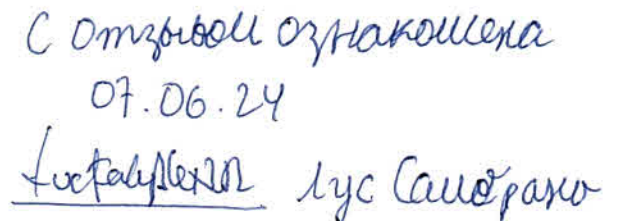 С отзывом ознакомлена
07.06.24
Лус Самбрано